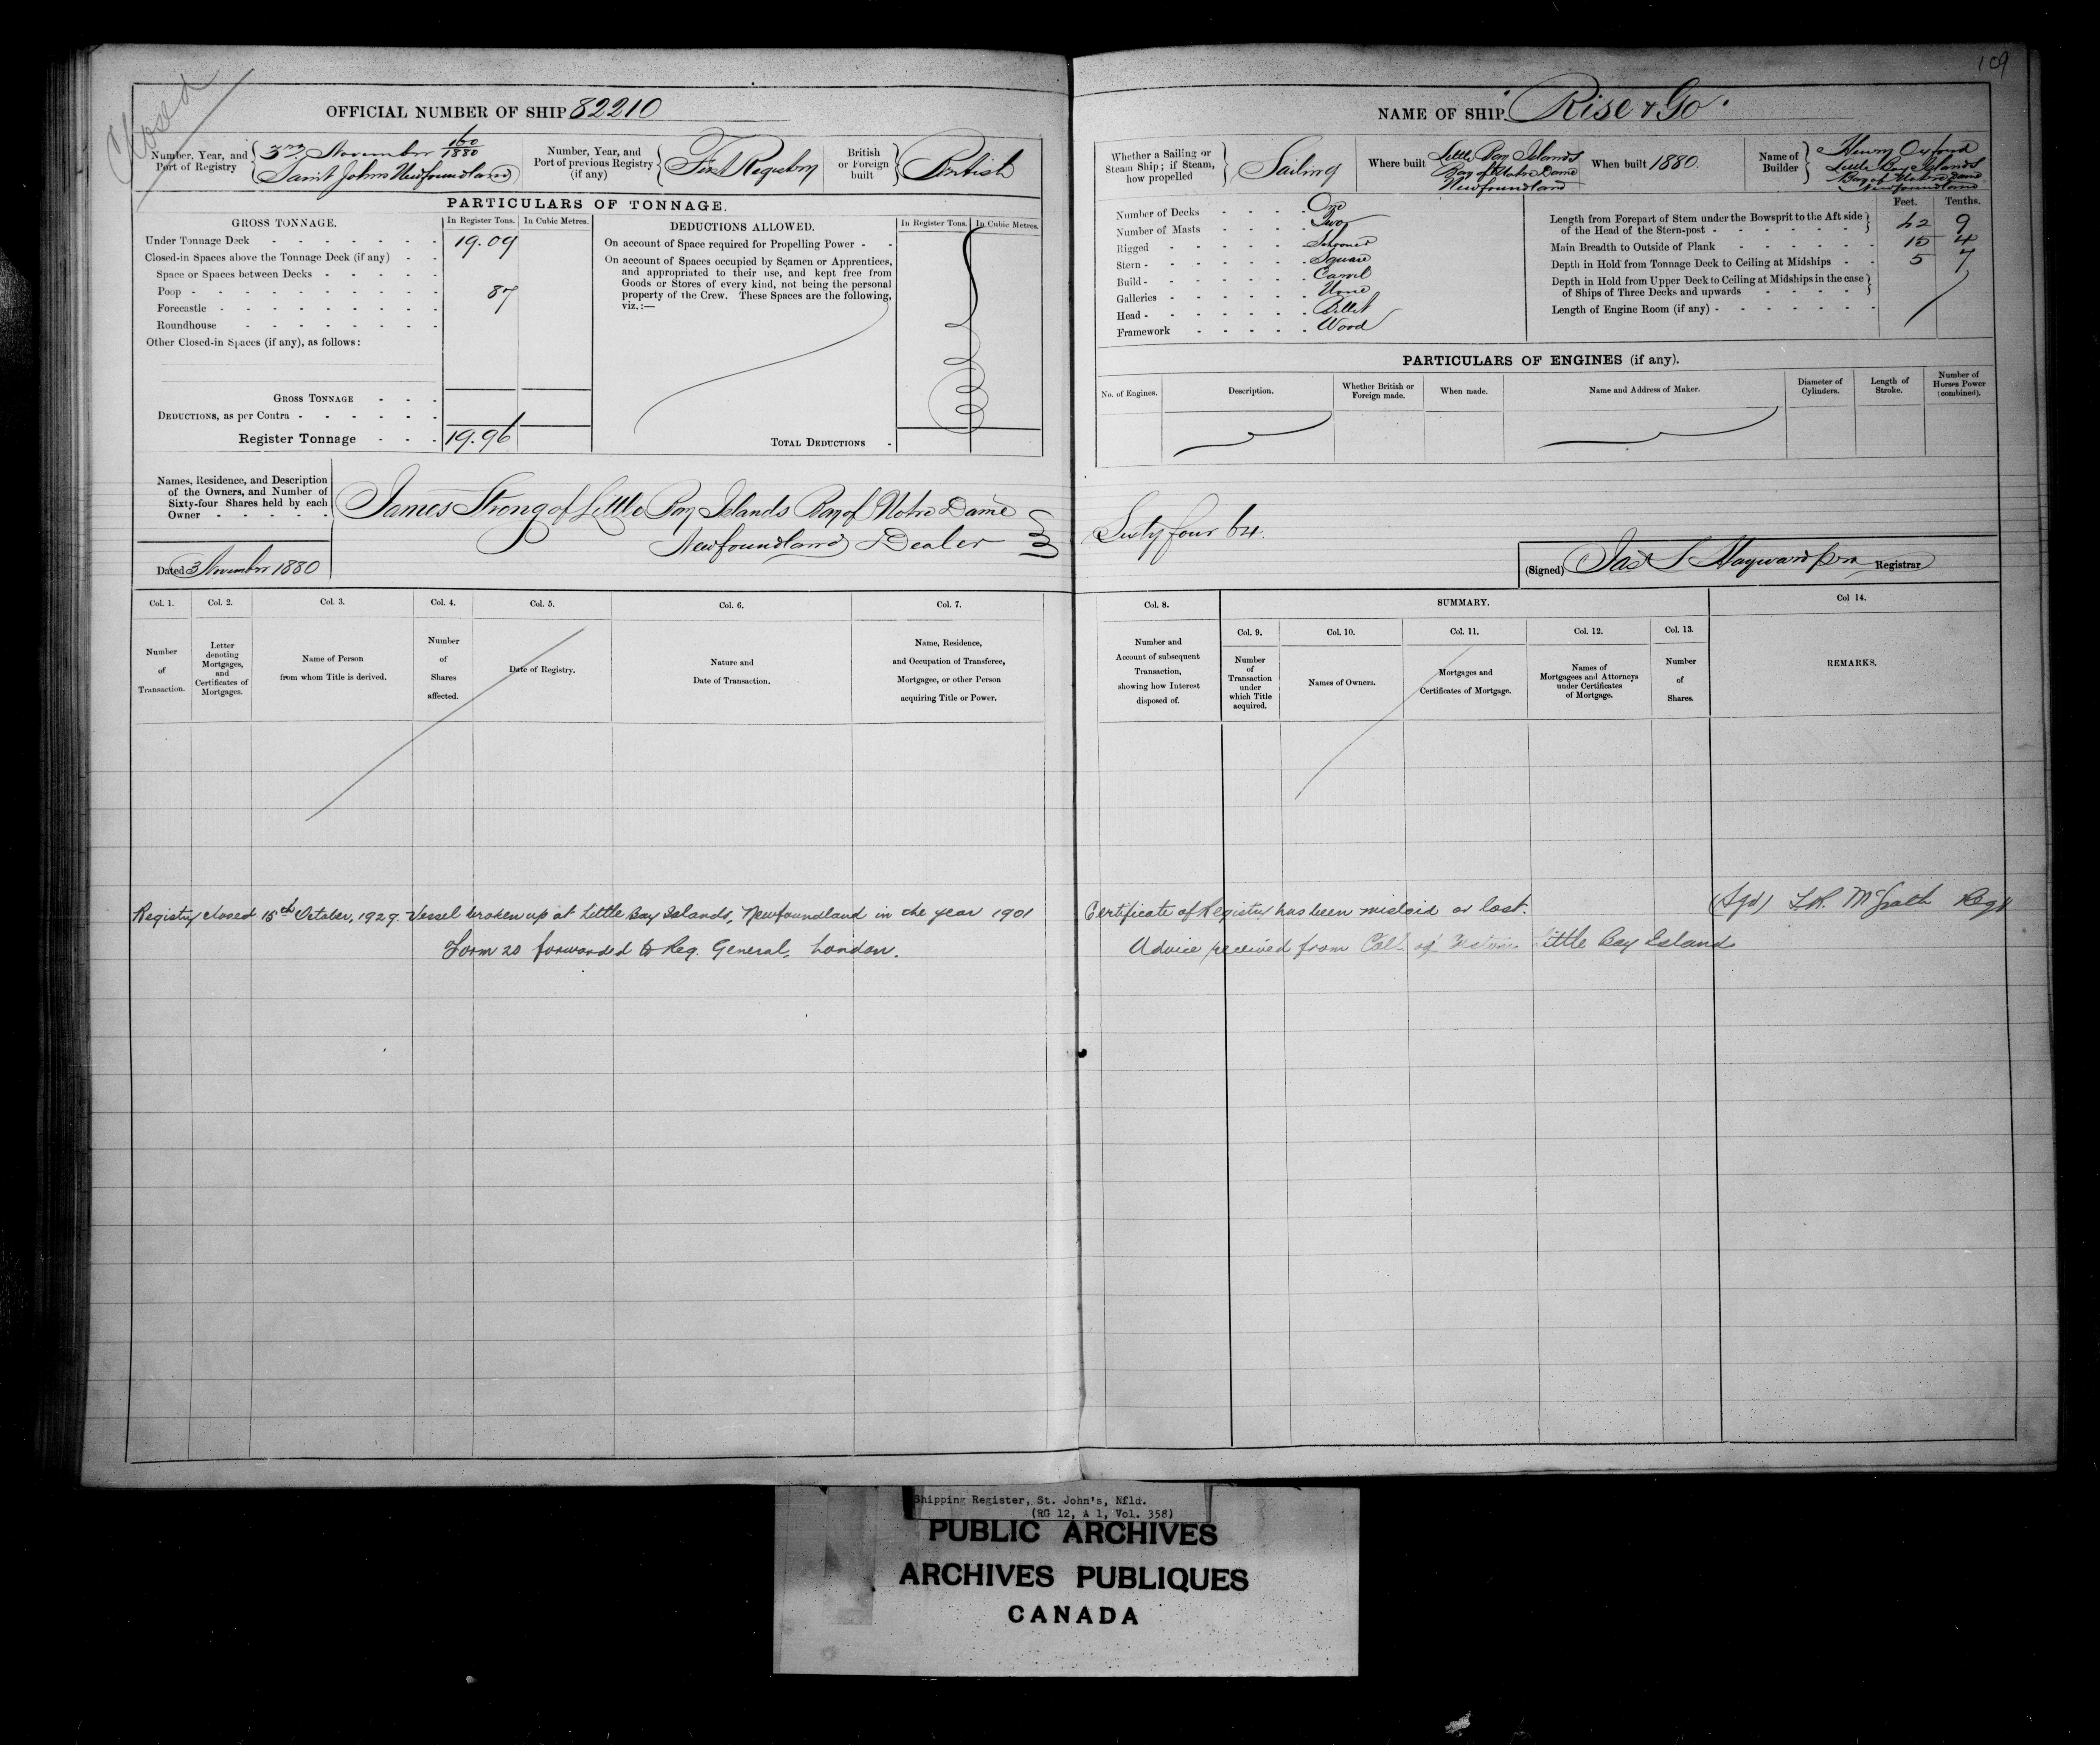 109
Closed
OFFICIAL NUMBER OF SHIP 82210
Number, Year, and Port of Registry
3rd November 160/1880
Saint Johns Newfoundland
Number, Year, and Port of previous Registry (if any)
First Registry
British or Foreign built
British
PARTICULARS OF TONNAGE.
GROSS TONNAGE.
In Register Tons. In Cubic Metres.
Under Tonnage Deck 19.09
Closed-in Spaces above the Tonnage Deck (if any)
Space or Spaces between Decks
Poop 87
Forecastle
Roundhouse
Other Closed-in Spaces (if any), as follows:
GROSS TONNAGE
DEDUCTIONS, as per Contra
Register Tonnage 19.96
DEDUCTIONS ALLOWED.
In Register Tons. In Cubic Metres.
On account of Space required for Propelling Power
On account of Spaces occupied by Seamen or Apprentices,
and appropriated to their use, and kept free from
Goods or Stores of every kind, not being the personal
property of the Crew. These Spaces are the following,
viz.:—
TOTAL DEDUCTIONS
Names, Residence, and Description
of the Owners, and Number of
Sixty-four Shares held by each
Owner
James Strong of Little Bay Islands Bay of Notre Dame
Newfoundland Dealer
Dated 3 November 1880
Col. 1. Col. 2. Col. 3. Col. 4. Col. 5. Col. 6. Col. 7.
Number of Transaction.
Letter denoting Mortgages, and Certificates of Mortgages.
Name of Person from whom Title is derived.
Number of Shares affected.
Date of Registry.
Nature and Date of Transaction.
Name, Residence, and Occupation of Transferee, Mortgagee, or other Person acquiring Title or Power.
Registry closed 15th October, 1929. Vessel broken up at Little Bay Islands, Newfoundland in the year 1901
Form 20 forwarded to Reg. General, London.
NAME OF SHIP Rise & Go
Whether a Sailing or Steam Ship; if Steam, how propelled
Sailing
Where built
Little Bay Islands
Bay of Notre Dame
Newfoundland
When built 1880.
Name of Builder
Henry Oxford
Little Bay Islands
Bay of Notre Dame
Newfoundland
Number of Decks One
Number of Masts Two
Rigged Schooner
Stern Square
Build Carvel
Galleries None
Head Billet
Framework Wood
Feet. Tenths.
Length from Forepart of Stem under the Bowsprit to the Aft side
of the Head of the Stern-post 42 9
Main Breadth to Outside of Plank 15 4
Depth in Hold from Tonnage Deck to Ceiling at Midships 5 7
Depth in Hold from Upper Deck to Ceiling at Midships in the case
of Ships of Three Decks and upwards
Length of Engine Room (if any)
PARTICULARS OF ENGINES (if any).
No. of Engines.
Description.
Whether British or Foreign made.
When made.
Name and Address of Maker.
Diameter of Cylinders.
Length of Stroke.
Number of Horses Power (combined).
Sixty four 64.
(Signed) Jas S Hayward pro Registrar
Col. 8. SUMMARY. Col 14.
Col. 9. Col. 10. Col. 11. Col. 12. Col. 13.
Number and Account of subsequent Transaction, showing how Interest disposed of.
Number of Transaction under which Title acquired.
Names of Owners.
Mortgages and Certificates of Mortgage.
Names of Mortgagees and Attorneys under Certificates of Mortgage.
Number of Shares.
REMARKS.
Certificate of Registry has been mislaid or lost. (Sgd) McGrath Regr
Advice received from Little Bay Island
Shipping Register, St. John's, Nfld.
(RG 12, A 1, Vol. 358)
PUBLIC ARCHIVES
ARCHIVES PUBLIQUES
CANADA